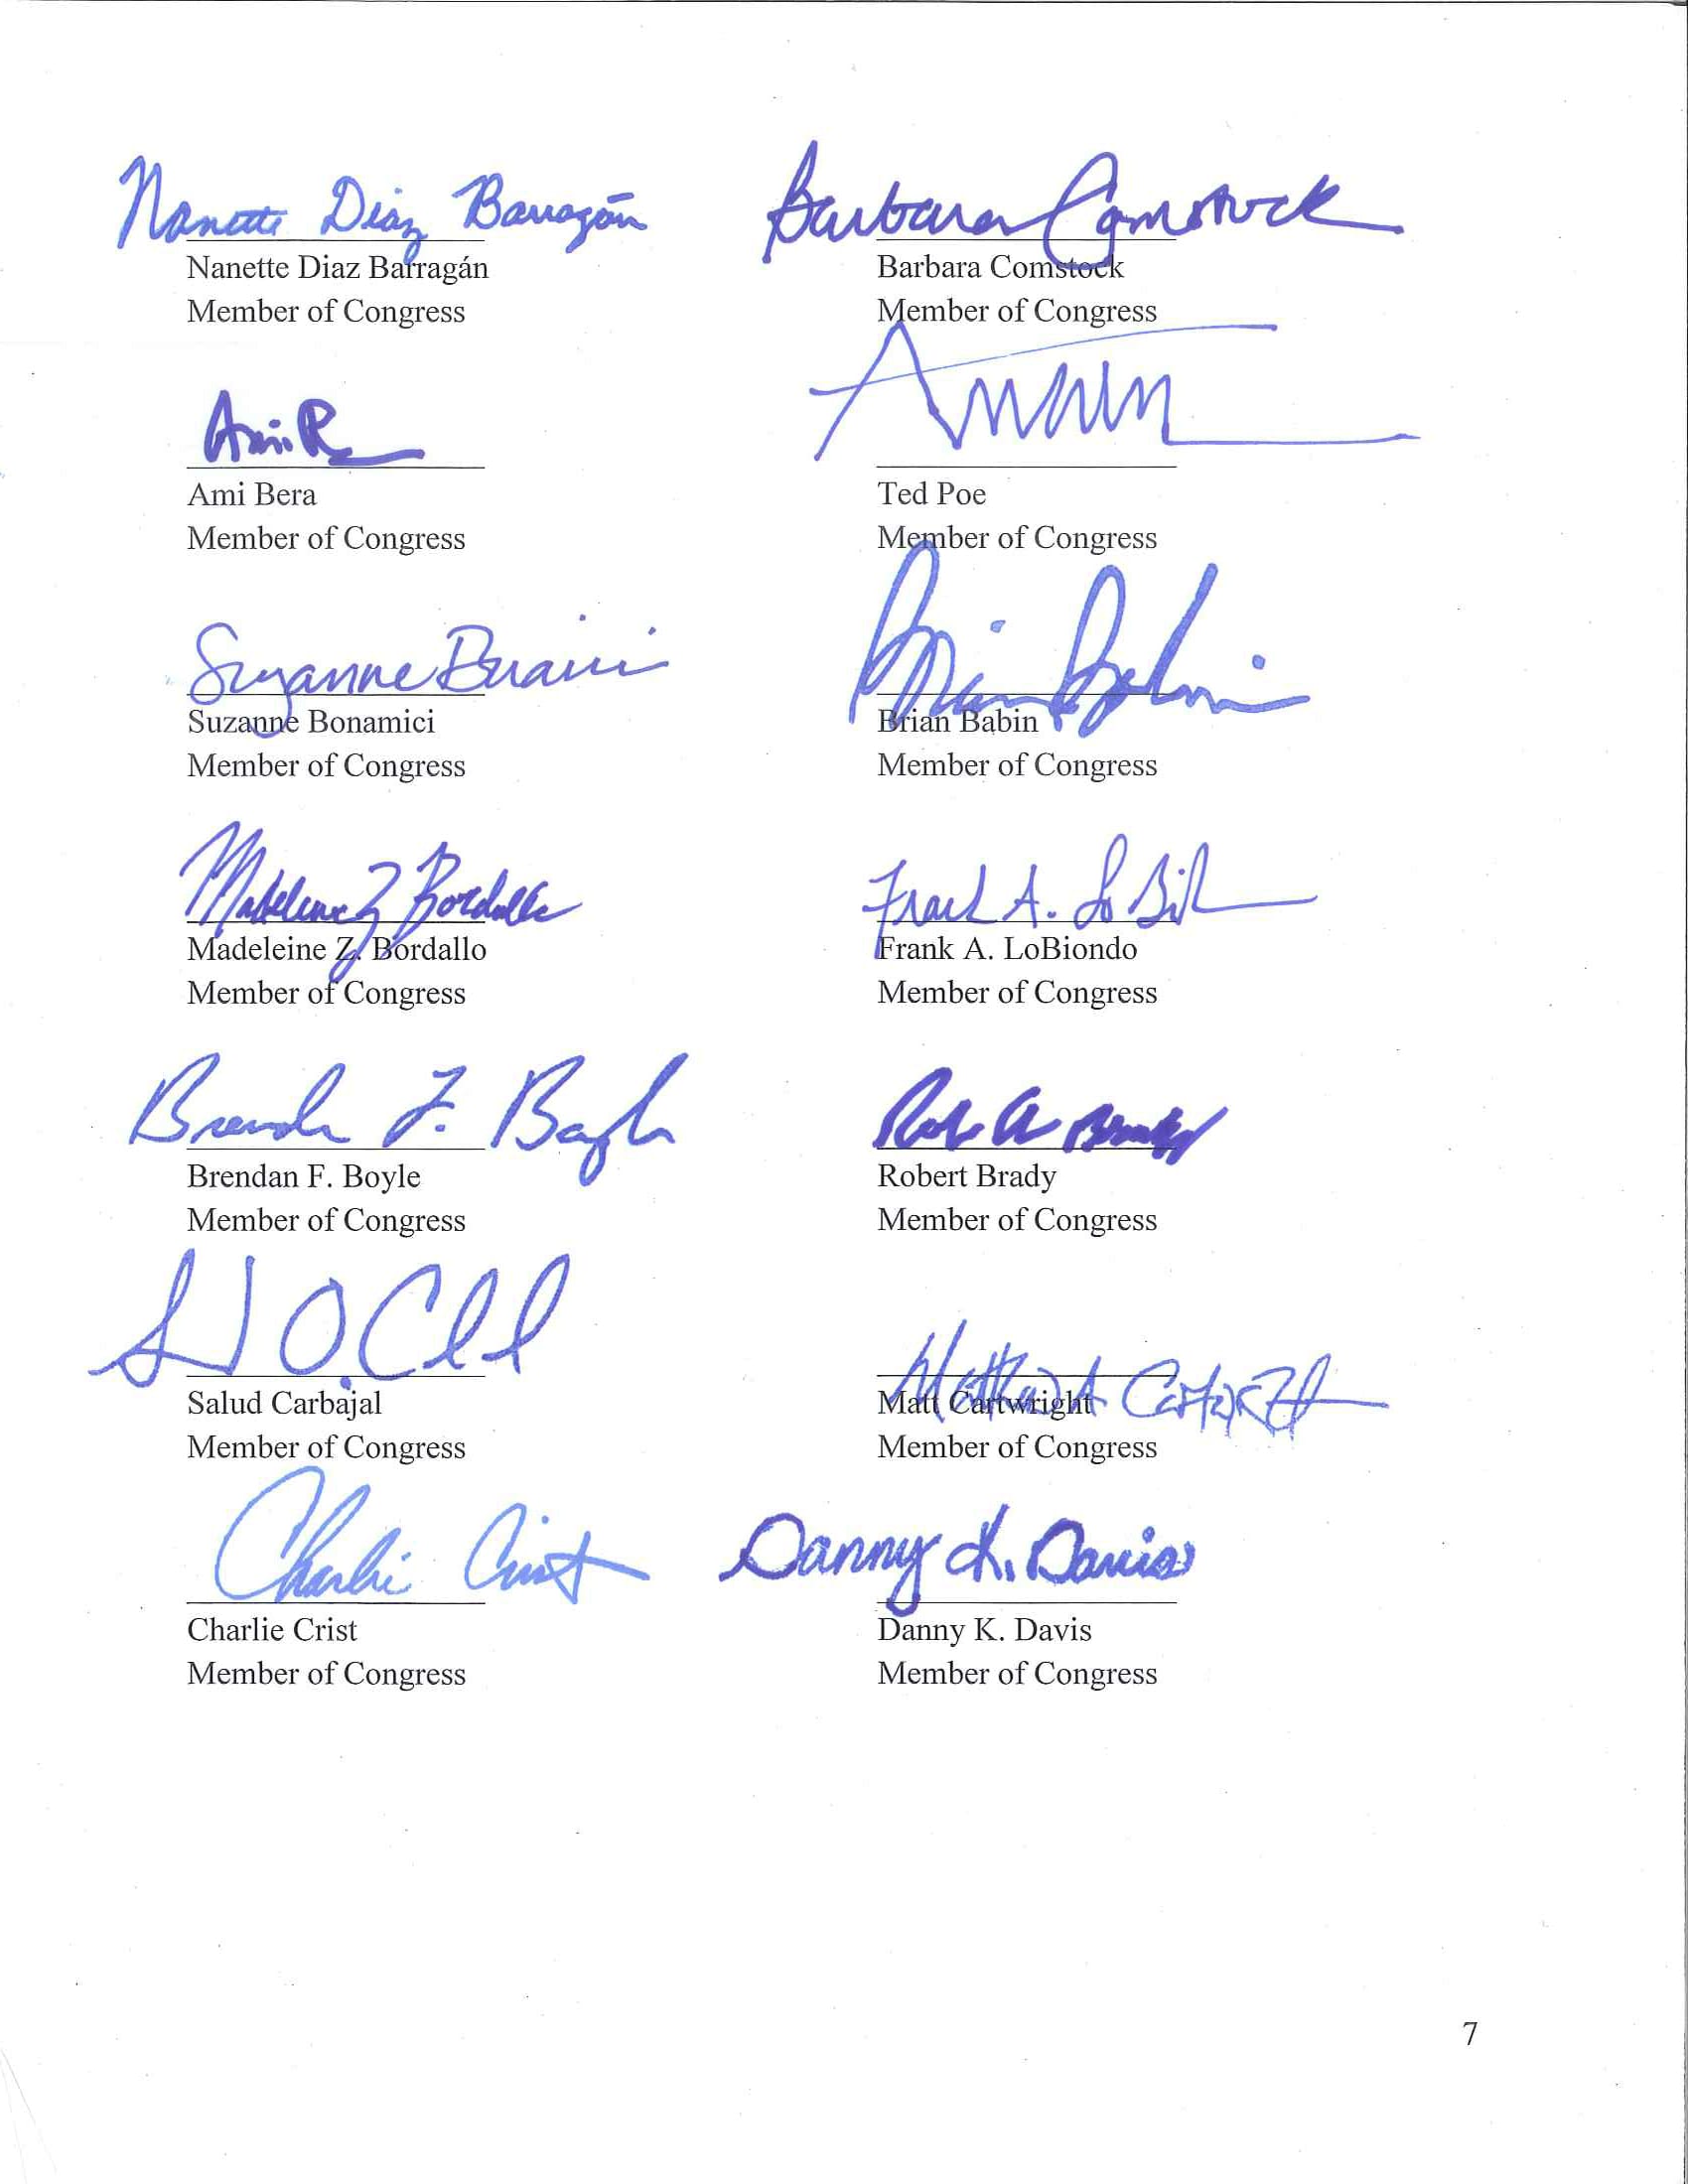 Nanette Diaz Barragán Barbara Comstock
Nanette Diaz Barragán Barbara Comstock
Member of Congress Member of Congress
Ami
Ami Bera Ted Poe
Member of Congress Member of Congress
Suzanne Brian Babin
Suzanne Bonamici Brian Babin
Member of Congress Member of Congress
Madeleine Z Bordallo Frank A. LoBi
Madeleine Z. Bordallo Frank A. LoBiondo
Member of Congress Member of Congress
Brendan F. Boyle
Brendan F. Boyle Robert Brady
Member of Congress Member of Congress
Salud Carbajal Matt Cartwright
Member of Congress Member of Congress
Charlie Crist Danny K. Davis
Charlie Crist Danny K. Davis
Member of Congress Member of Congress
7